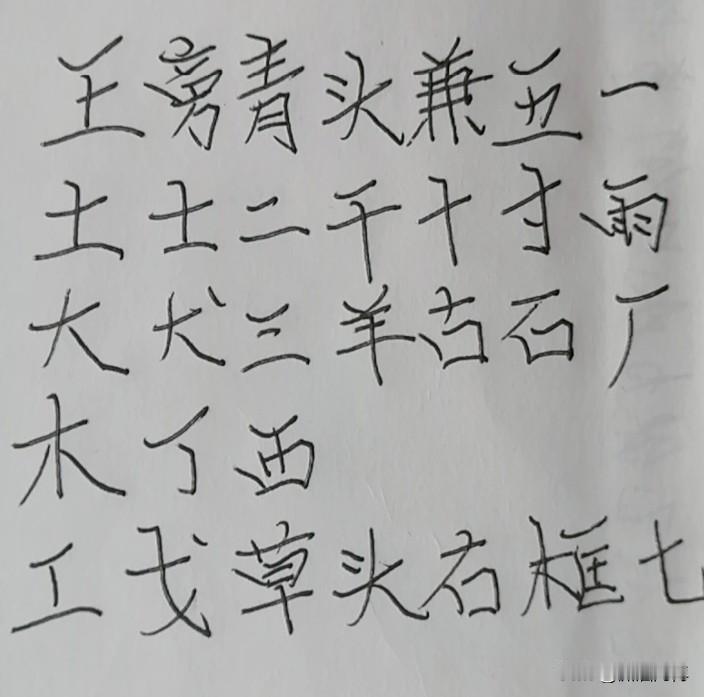 王旁青头兼五一
土士二干十寸雨
大犬三羊古石厂
木丁西
工戈草头右框七